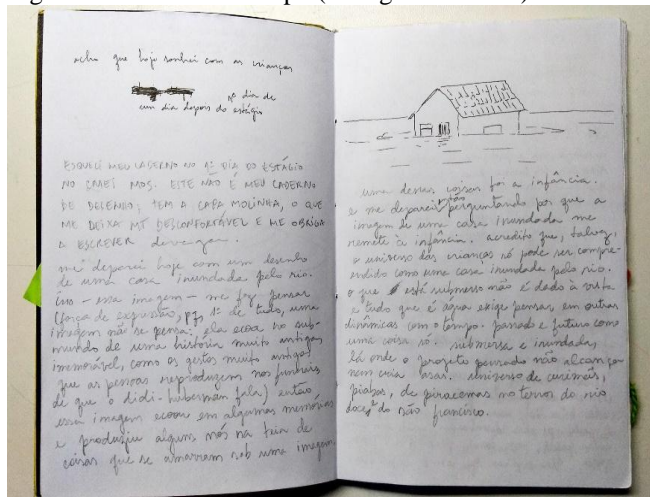 acho que hoje sonhei com as crianças
1º dia de
um dia depois do estágio
ESQUECI MEU CADERNO NO 1º DIA DO ESTÁGIO
NO CMEI MOS. ESTE NÃO É MEU CADERNO
DE DESENHO; TEM A CAPA MOLINHA, O QUE
ME DEIXA MT DESCONFORTÁVEL E ME OBRIGA
A ESCREVER devagar.
me deparei hoje com um desenho
de uma casa inundada pelo rio.
isso – essa imagem – me fez pensar
(força de expressão, pq, 1º de tudo, uma
imagem não se pensa: ela ecoa no sub-
mundo de uma história muito antiga,
imemorável, como os gestos muito antigos
que as pessoas reproduzem nos funerais
de que o didi-huberman fala) então
essa imagem ecoou em algumas memórias
e produziu alguns nós na teia de
coisas que se amarram sob uma imagem.
uma dessas coisas foi a infância.
e me deparei então perguntando por que a
imagem de uma casa inundada me
remete à infância. acredito que, talvez,
o universo das crianças só pode ser compre-
endido como uma casa inundada pelo rio.
o que está submerso não é dado à vista
e tudo que é água exige pensar em outras
dinâmicas com o tempo. passado e futuro como
uma coisa só. submersa e inundada,
lá onde o projeto pensado não alcançou
nem cria asas. universo de curimãs,
piabas, de piracemas no ternos do rio
doce, do são francisco.